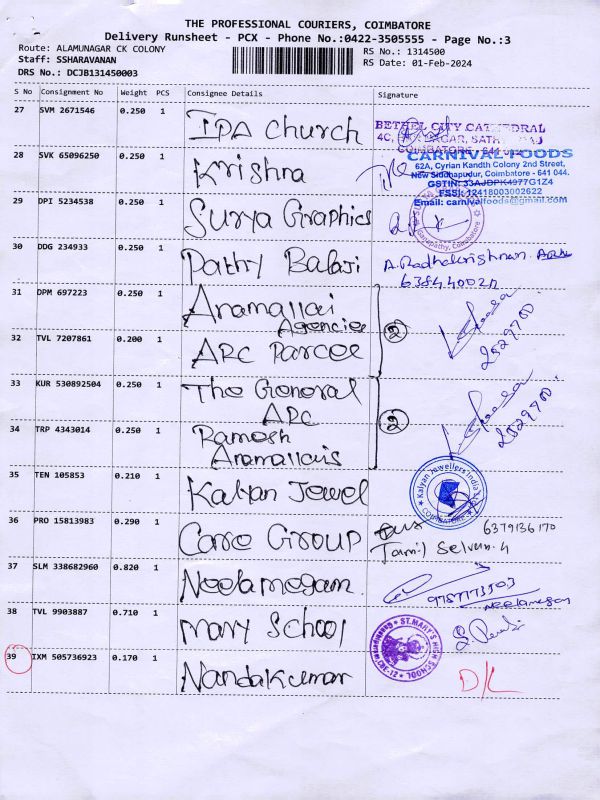 THE PROFESSIONAL COURIERS, COIMBATORE
Delivery Runsheet - PCX - Phone No.:0422-3505555 - Page No.:3
Route: ALAMUNAGAR CK COLONY
RS No.: 1314500
Staff: SSHARAVANAN
RS Date: 01-Feb-2024
DRS No.: DCJB131450003
S No Consignment No Weight PCS Consignee Details Signature
27 SVM 2671546 0.250 1 IPA Church
BETHEL CITY CATHEDRAL
28 SVK 65096250 0.250 1 Krishna
CARNIVAL FOODS
62A, Cyrian Kandth Colony 2nd Street,
New Siddhapudur, Coimbatore - 641 044.
GSTIN: 33AJDPK4977G1Z4
FSSI: 12418003002622
Email: carnivalfoods@gmail.com
29 DPI 5234538 0.250 1 Surya Graphics
30 DDG 234933 0.250 1 Pathy Balaji
A. Radhakrishnan.
31 DPM 697223 0.250 1 Anamallai
Agencies
2
32 TVL 7207861 0.200 1 ARC Parcel
2529700
33 KUR 530892504 0.250 1 The General
ARC
2
34 TRP 4343014 0.250 1 Ramesh
Anamallais
2529700
35 TEN 105853 0.210 1 Kalyan Jewel
Kalyan Jewellers India
COIMBATORE
36 PRO 15813983 0.290 1 Care Group
6379136170
Tamil Selvan
37 SLM 338682960 0.820 1 Neelamegam
Neelamegam
38 TVL 9903887 0.710 1 Mary School
ST.MARY'S HIGH SCHOOL
39 IXM 505736923 0.170 1 Nandakumar
D/L